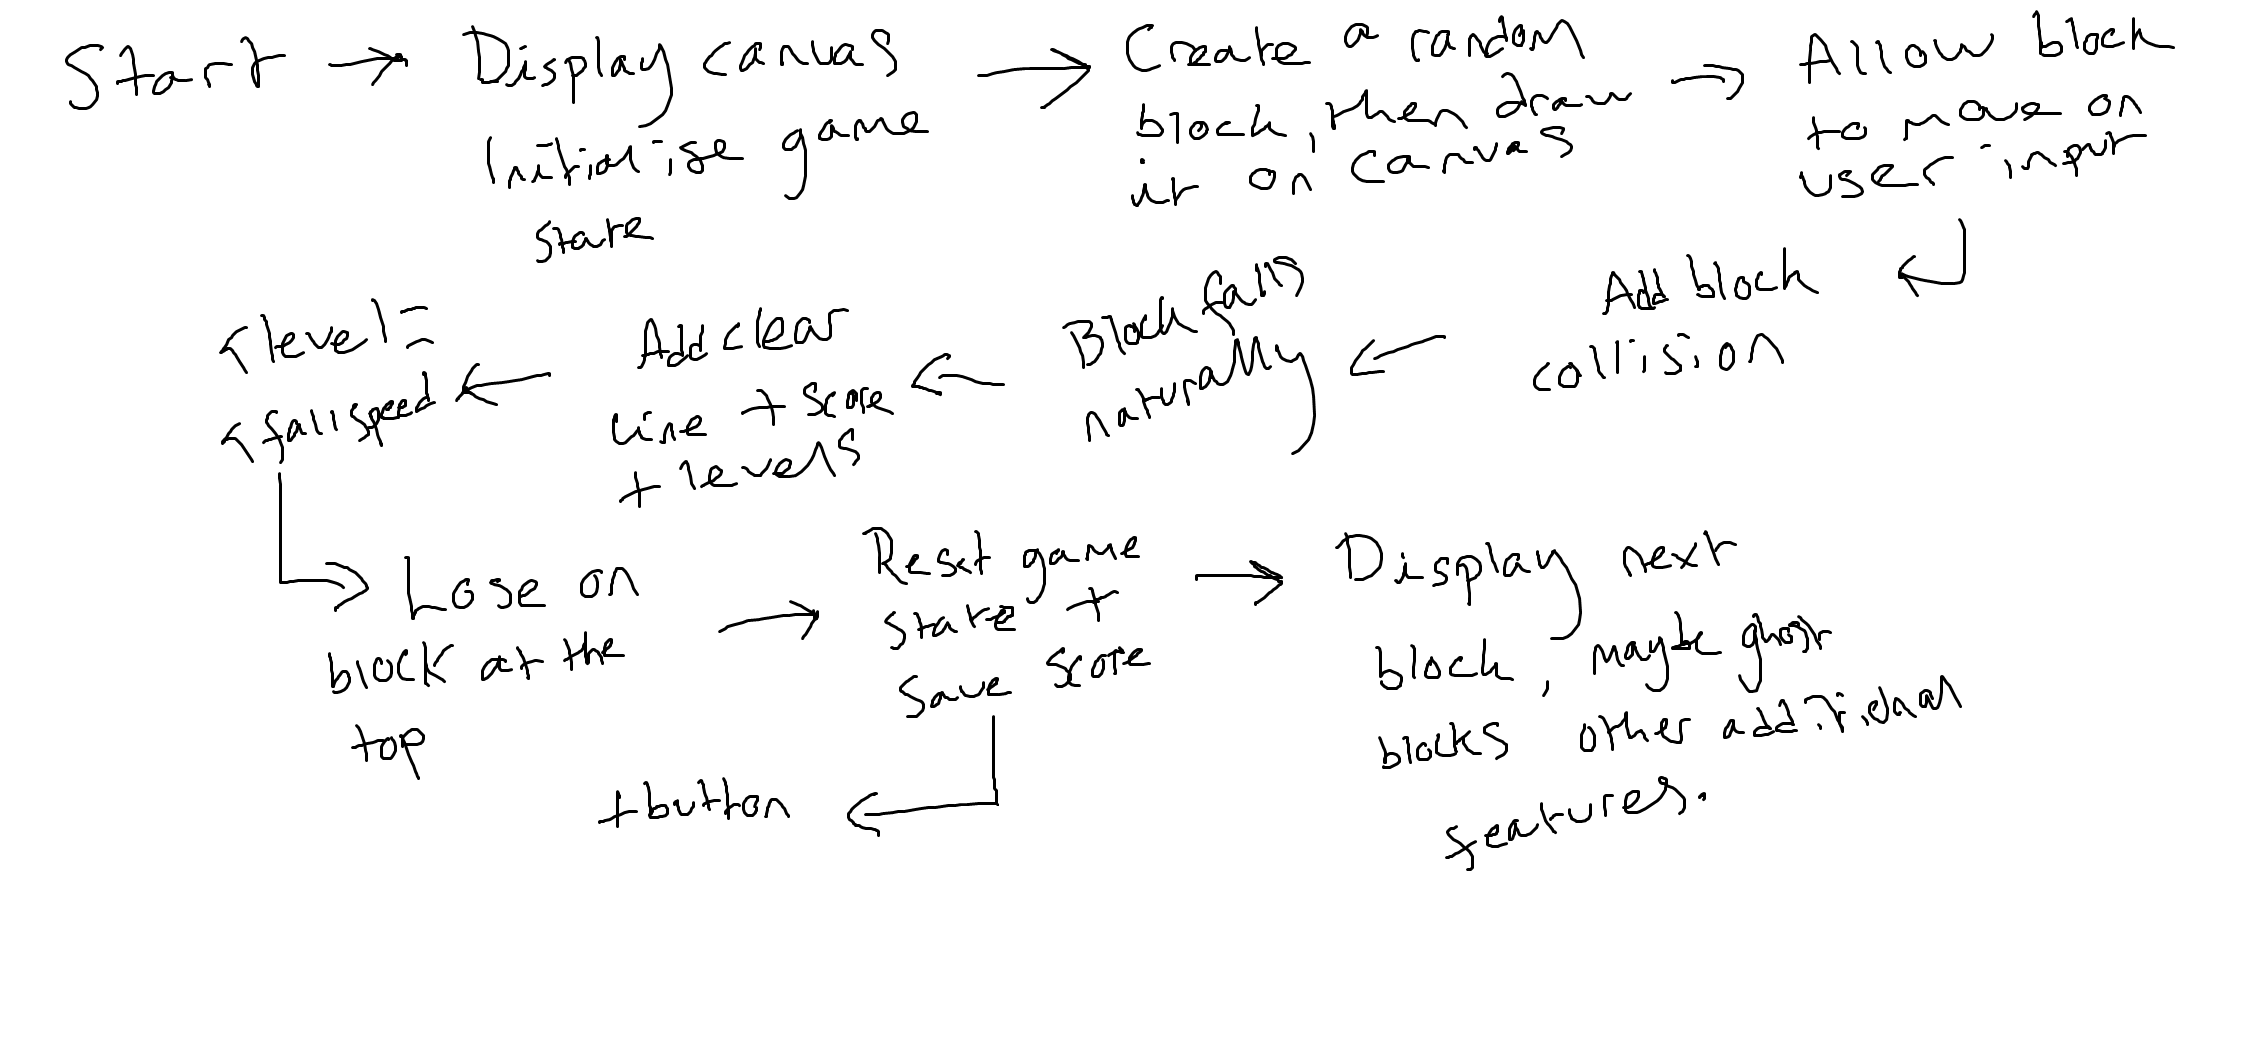 Start → Display canvas
Initialise game
state
→ Create a random
block, then draw
it on canvas
→ Allow block
to move on
user input
Add block
collision
← Block falls
naturally
← Add clear
line + score
+ levels
← ↑ level =
↑ fall speed
→ Lose on
block at the
top
→ Reset game
state +
save score
+ button
→ Display next
block, maybe ghost
blocks other additional
features.